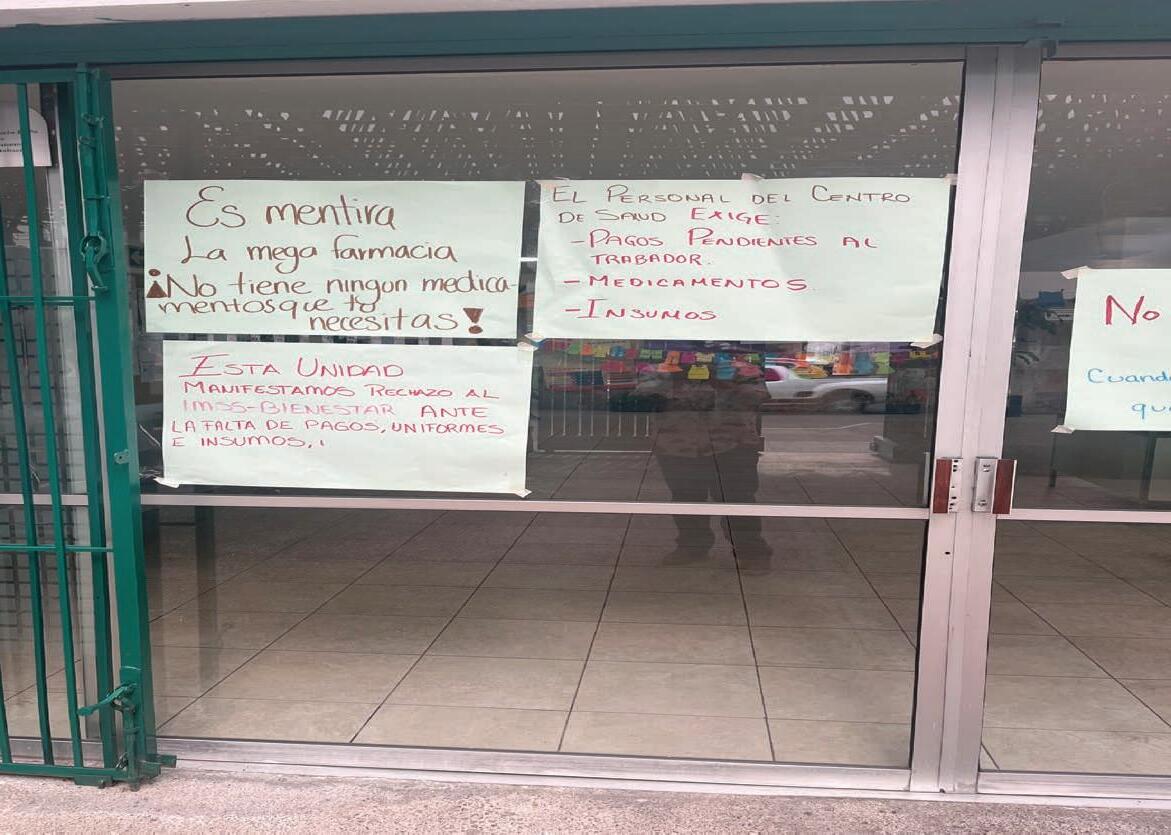 Es mentira
La mega farmacia
¡No tiene ningun medica-
mentos que tu
necesitas!
EL PERSONAL DEL CENTRO
DE SALUD EXIGE:
-PAGOS PENDIENTES AL
TRABADOR.
-MEDICAMENTOS.
-INSUMOS
ESTA UNIDAD
MANIFESTAMOS RECHAZO AL
IMSS-BIENESTAR ANTE
LA FALTA DE PAGOS, UNIFORMES
E INSUMOS,
No